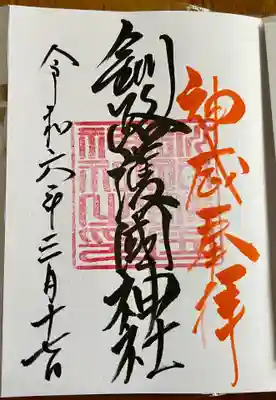 神威奉拝
釧路護國神社
令和六年二月十七日